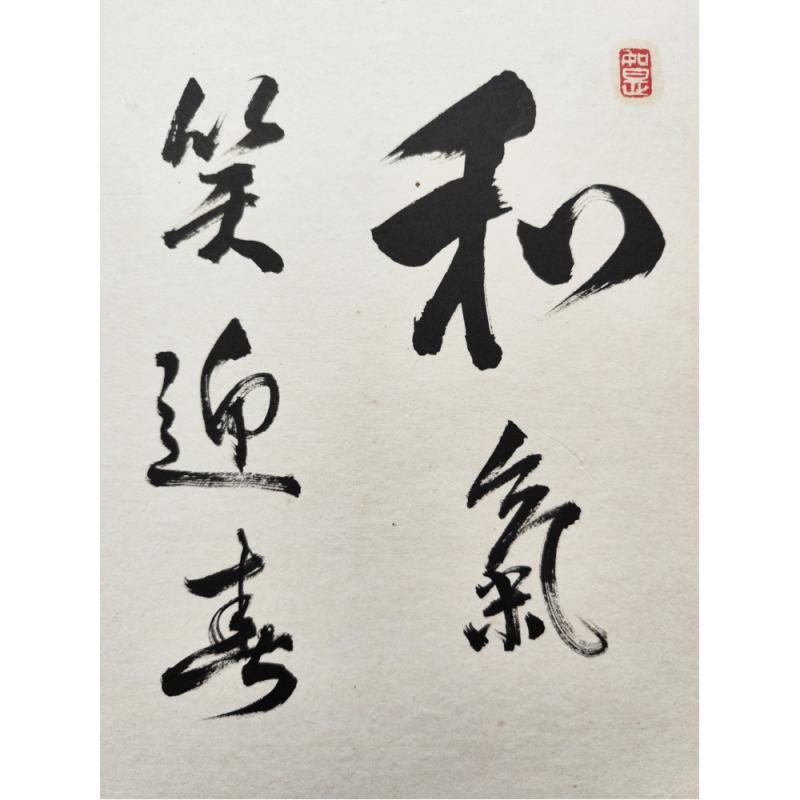 和氣
笑迎春